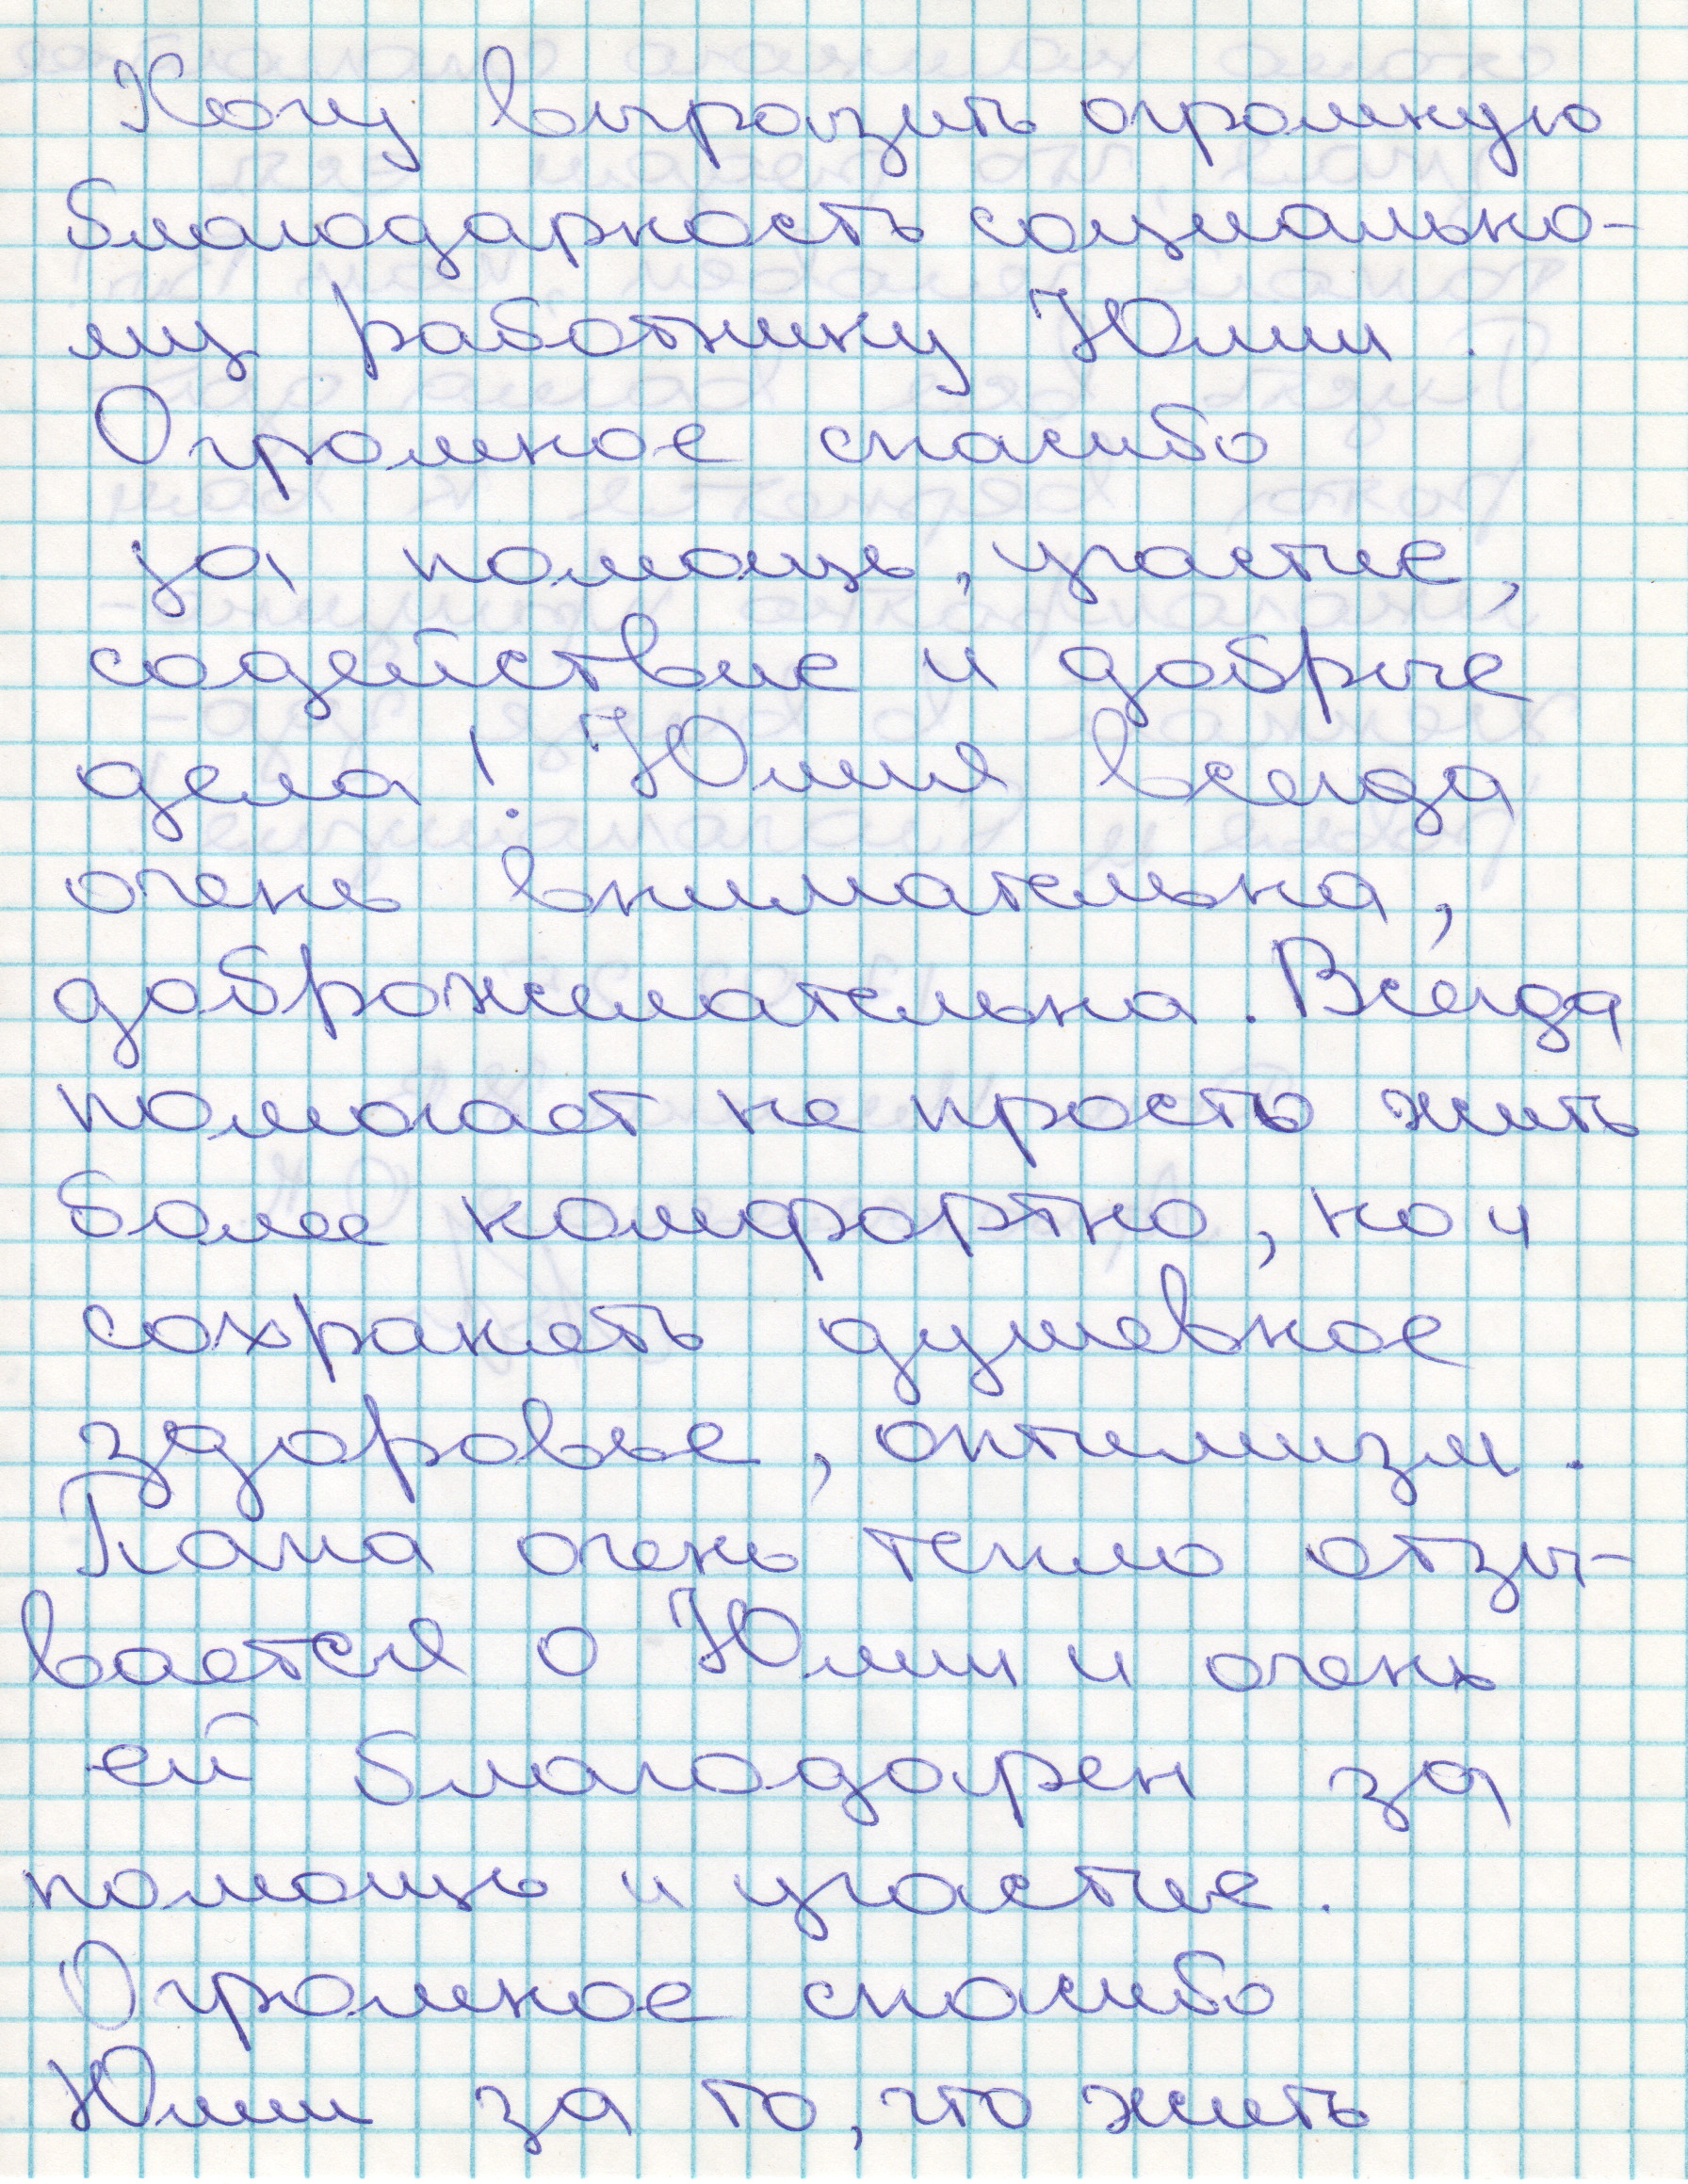 Хочу выразить огромную
благодарность социально-
му работнику Юлии.
Огромное спасибо
за помощь, участие,
содействие и добрые
дела! Юлия всегда
очень внимательна,
доброжелательна. Всегда
помогает не просто жить
более комфортно, но и
сохранять душевное
здоровье, оптимизм.
Папа очень тепло отзы-
вается о Юлии и очень
ей благодарен за
помощь и участие.
Огромное спасибо
Юлии за то, что жить